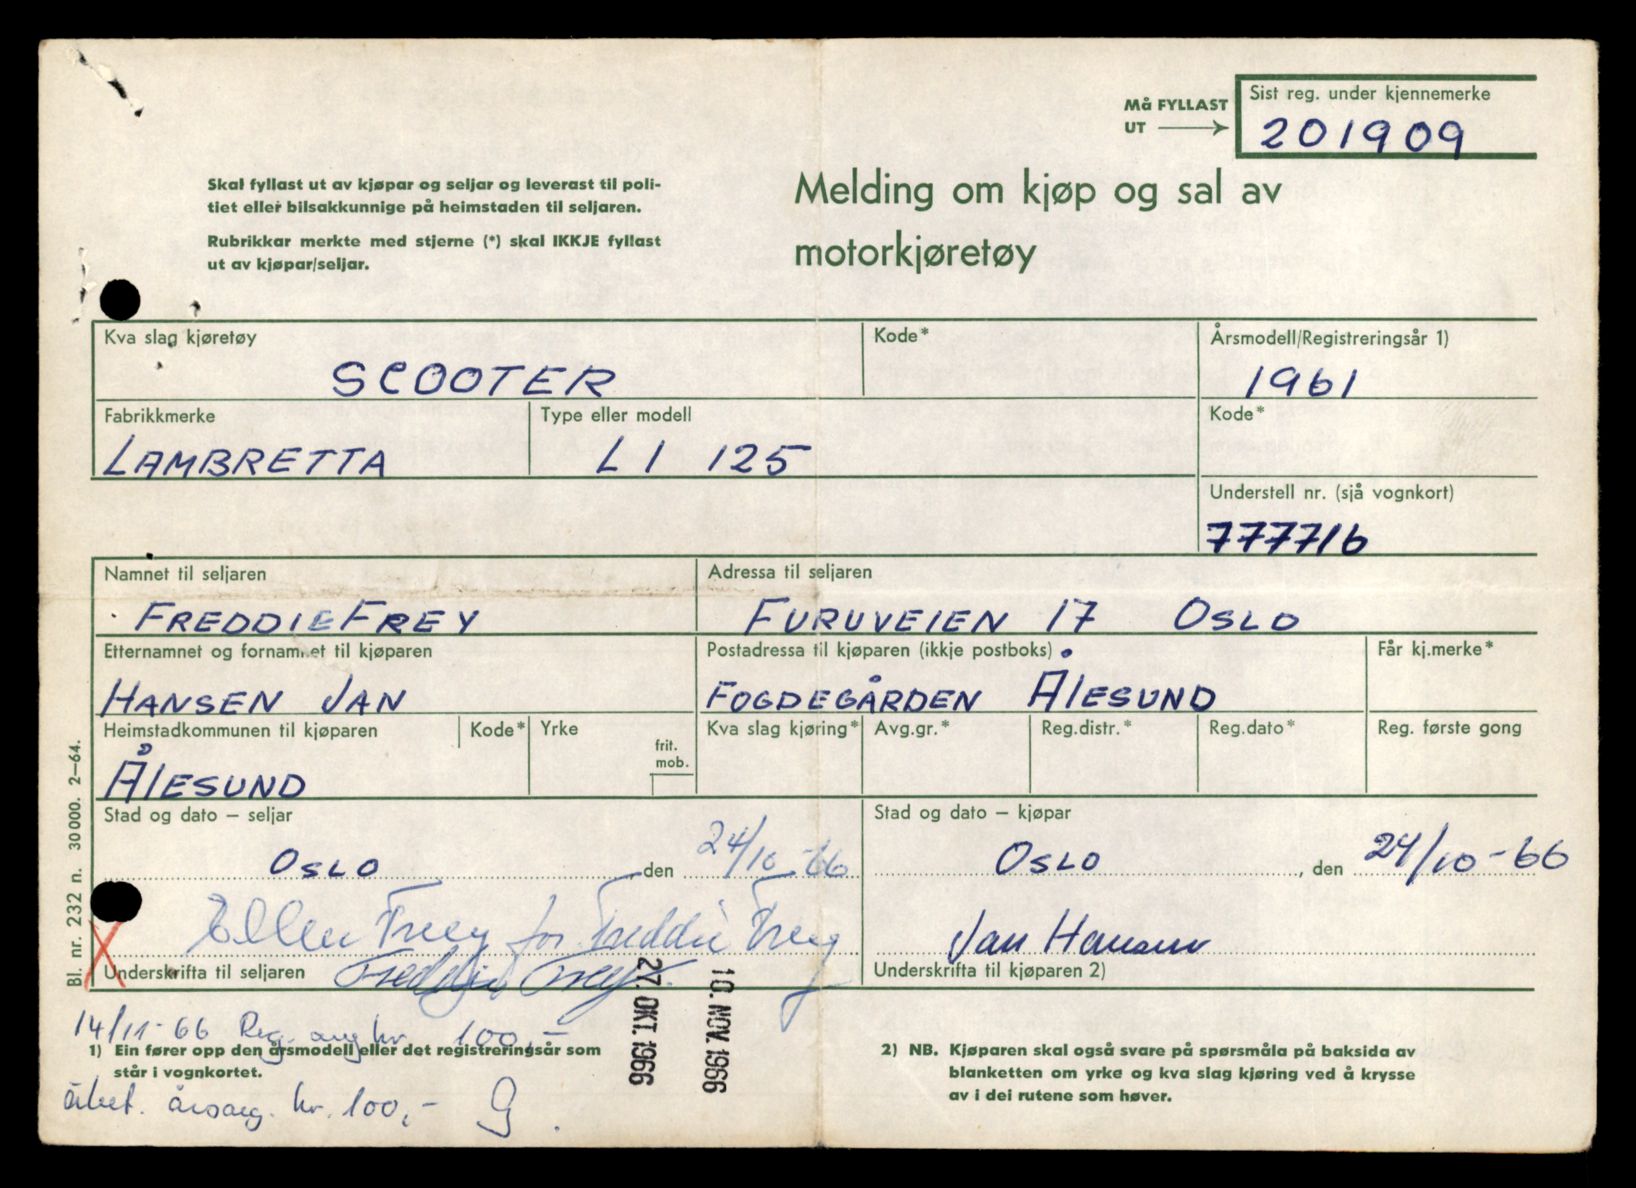 Må FYLLAST
UT
Sist reg. under kjennemerke
201909
Skal fyllast ut av kjøpar og seljar og leverast til poli-
tiet eller bilsakkunnige på heimstaden til seljaren.
Rubrikkar merkte med stjerne (*) skal IKKJE fyllast
ut av kjøpar/seljar.
Melding om kjøp og sal av
motorkjøretøy
Kva slag kjøretøy
SCOOTER
Kode*
Årsmodell/Registreringsår 1)
1961
Fabrikkmerke
LAMBRETTA
Type eller modell
LI 125
Kode*
Understell nr. (sjå vognkort)
777716
Namnet til seljaren
FREDDIE FREY
Adressa til seljaren
FURUVEIEN 17 OSLO
Etternamnet og fornamnet til kjøparen
HANSEN JAN
Postadressa til kjøparen (ikkje postboks)
FOGDEGÅRDEN ÅLESUND
Får kj.merke*
Heimstadkommunen til kjøparen
ÅLESUND
Kode*
Yrke
frit.
mob.
Kva slag kjøring*
Avg.gr.*
Reg.distr.*
Reg.dato*
Reg. første gong
Stad og dato – seljar
OSLO den 24/10-66
Stad og dato – kjøpar
OSLO, den 24/10-66
Ellen Frey for Freddie Frey
Jan Hansen
Underskrifta til seljaren
Freddie Frey
Underskrifta til kjøparen 2)
Bl. nr. 232 n. 30000. 2–64.
27. OKT. 1966
10. NOV. 1966
14/11-66 Reg. avg kr 100,-
1) Ein fører opp den årsmodell eller det registreringsår som
står i vognkortet.
årsavg. kr. 100,-
2) NB. Kjøparen skal også svare på spørsmåla på baksida av
blanketten om yrke og kva slag kjøring ved å krysse
av i dei rutene som høver.